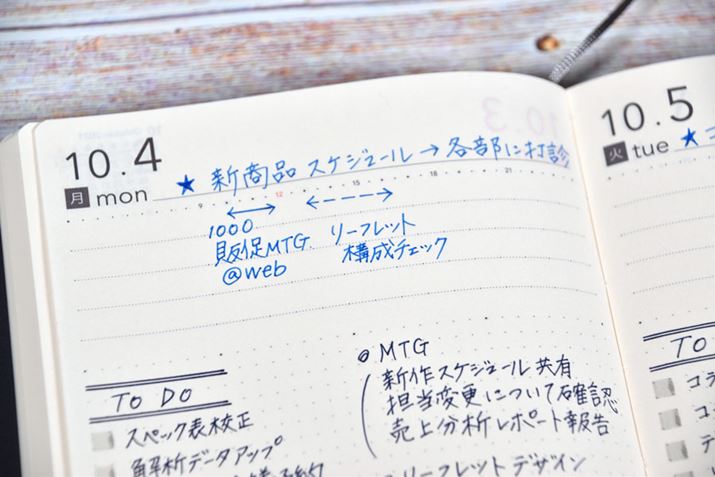 10.4
月 mon
★新商品 スケジュール→各部に打診
9 12 15 18 21
1000
販促MTG
@web
リーフレット
構成チェック
TO DO
スペック表校正
解析データアップ
MTG
新作スケジュール共有
担当変更について確認
売上分析レポート報告
リーフレットデザイン
10.5
火 tue
★
TO
コラ
コ
テ